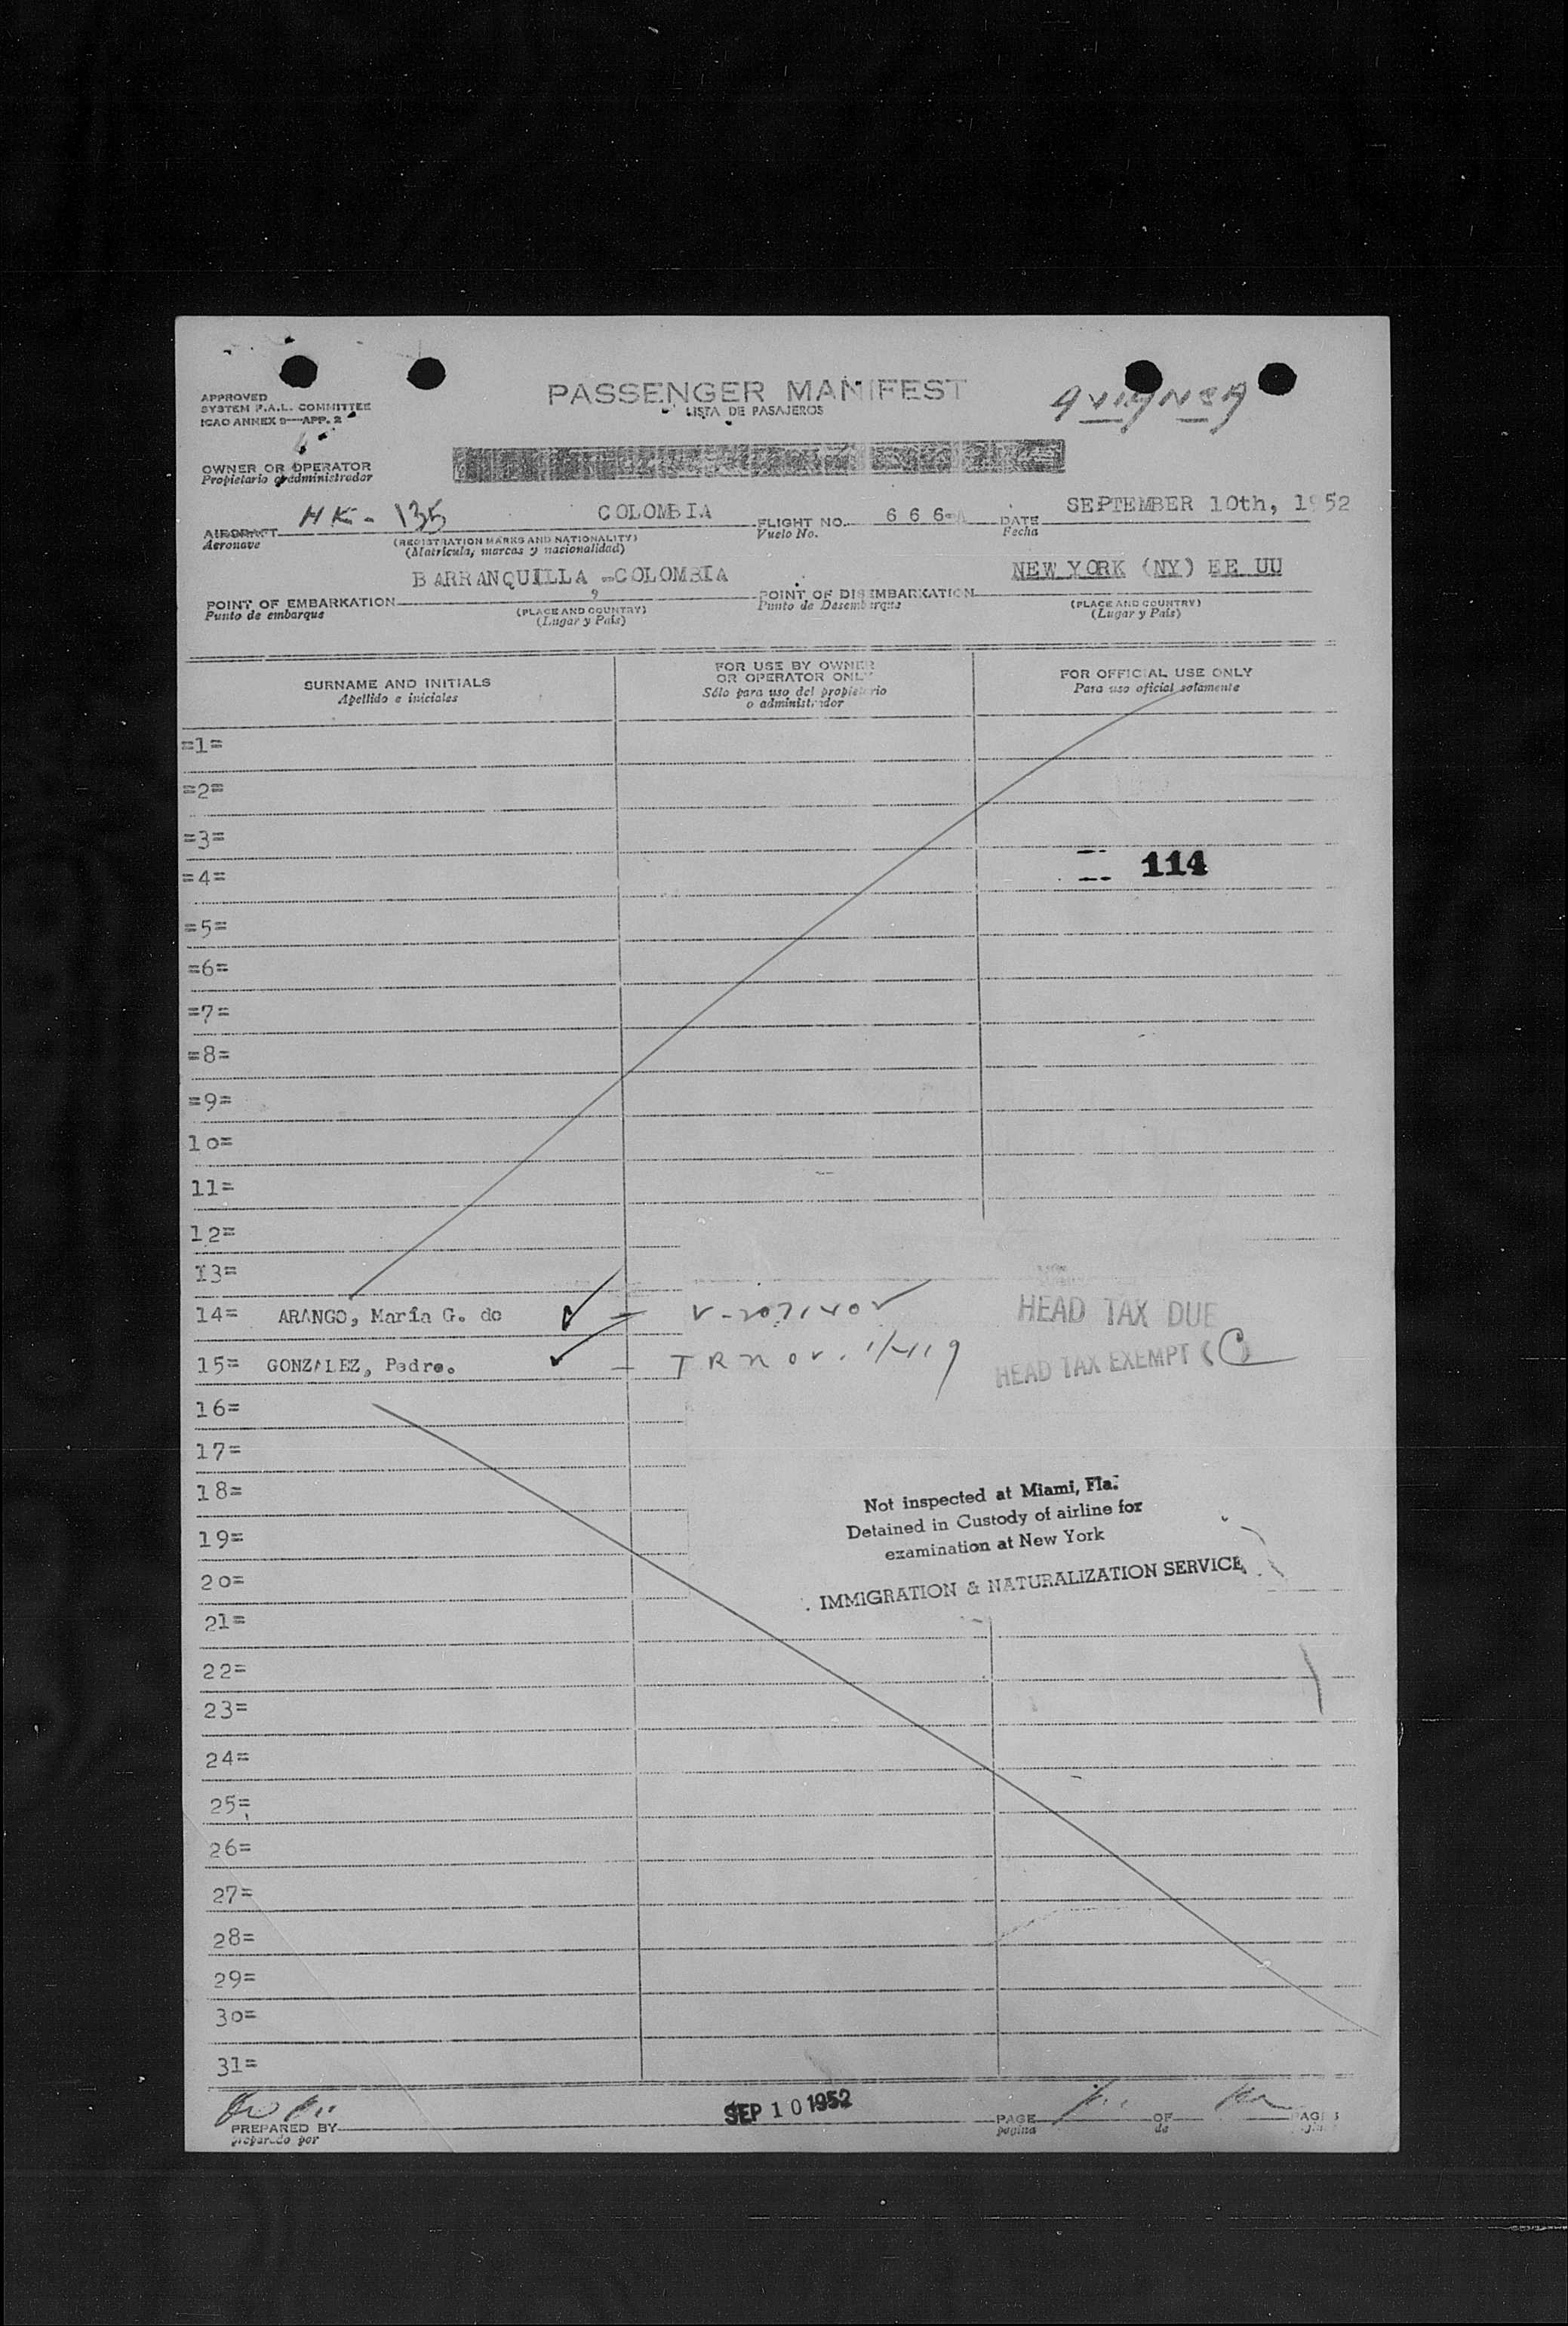 PASSENGER MANIFEST
LISTA DE PASAJEROS
AVIANCA
APPROVED
SYSTEM F.A.L. COMMITTEE
ICAO ANNEX 9—APP. 2
OWNER OR OPERATOR
Propietario o administrador
AIRCRAFT HK-135 COLOMBIA FLIGHT NO. 666-A DATE SEPTEMBER 10th, 1952
Aeronave (REGISTRATION MARKS AND NATIONALITY) Vuelo No. Fecha
(Matrícula, marcas y nacionalidad)
BARRANQUILLA -COLOMBIA NEW YORK (NY) EE UU
POINT OF EMBARKATION POINT OF DISEMBARKATION
Punto de embarque (PLACE AND COUNTRY) Punto de Desembarque (PLACE AND COUNTRY)
(Lugar y País) (Lugar y País)
SURNAME AND INITIALS
Apellido e iniciales
FOR USE BY OWNER
OR OPERATOR ONLY
Sólo para uso del propietario
o administrador
FOR OFFICIAL USE ONLY
Para uso oficial solamente
=1=
=2=
=3=
114
=4=
=5=
=6=
=7=
=8=
=9=
10=
11=
12=
13=
14= ARANGO, María G. de HEAD TAX DUE
15= GONZALEZ, Pedro. HEAD TAX EXEMPT (C)
16=
17=
18=
Not inspected at Miami, Fla.
Detained in Custody of airline for
examination at New York
IMMIGRATION & NATURALIZATION SERVICE
19=
20=
21=
22=
23=
24=
25=
26=
27=
28=
29=
30=
31=
SEP 10 1952
PREPARED BY PAGE OF PAGES
preparado por página de